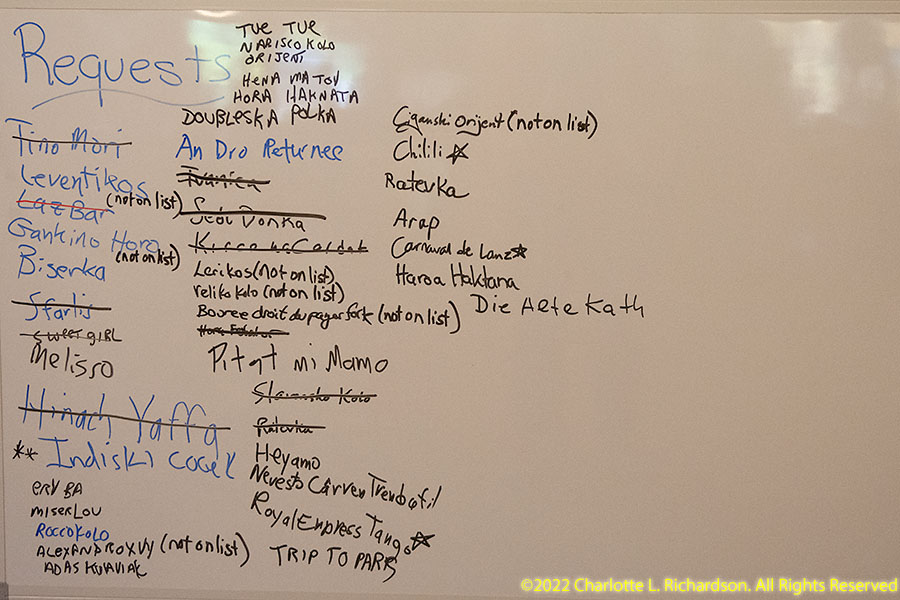 Requests
TUE TUE
NARISCO KOLO
ORIJENT
HENA MA TOV
HORA HAKNATA
DOUBLESKA POLKA
Tino Mori
Leventikos
Laz Bar (not on list)
Gankino Horo (not on list)
Biserka
Sfarlis
SWEET GIRL
Melisso
Hinach Yaffa
** Indiski cocek
ERV BA
MISERLOU
ROCCOKOLO
ALEXANDROXVY (not on list)
ADAS KUAVIAK
An Dro Retournee
Ivanica
Sedi Donka
Lerikos (not on list)
veliko kolo (not on list)
Bouree droit du payer fork (not on list)
Pitat mi Mamo
Ratevka
Heyamo
Nevesto Cârven Trendafil
Royal Empress Tango ☆
TRIP TO PARIS
Ciganski Orijent (not on list)
Chilili ☆
Ratevka
Arap
Carnaval de Lanz ★
Haroa Haktana
Die Alte Kath
©2022 Charlotte L. Richardson. All Rights Reserved